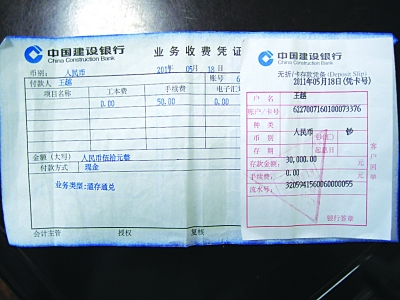 中国建设银行
China Construction Bank
业务收费凭证
币别: 人民币 2011年 05月 18日
付款人 王越 账号 6
项目名称 工本费 手续费 电子汇
0.00 50.00 0.00
金额(大写) 人民币伍拾元整
付款方式 现金
业务类型:通存通兑
会计主管 授权 复核
中国建设银行
China Construction Bank
无折/卡存款凭条 (Deposit Slip)
2011年05月18日(凭卡号)
户名 王越
账户/卡号 6227007160100073376
种类
币别 人民币 钞
钞(汇)
存期 起息日
存款金额: 30,000.00 元
手续费: 0.00 元
流水号: 3205941560060000055
银行签章
客户回单